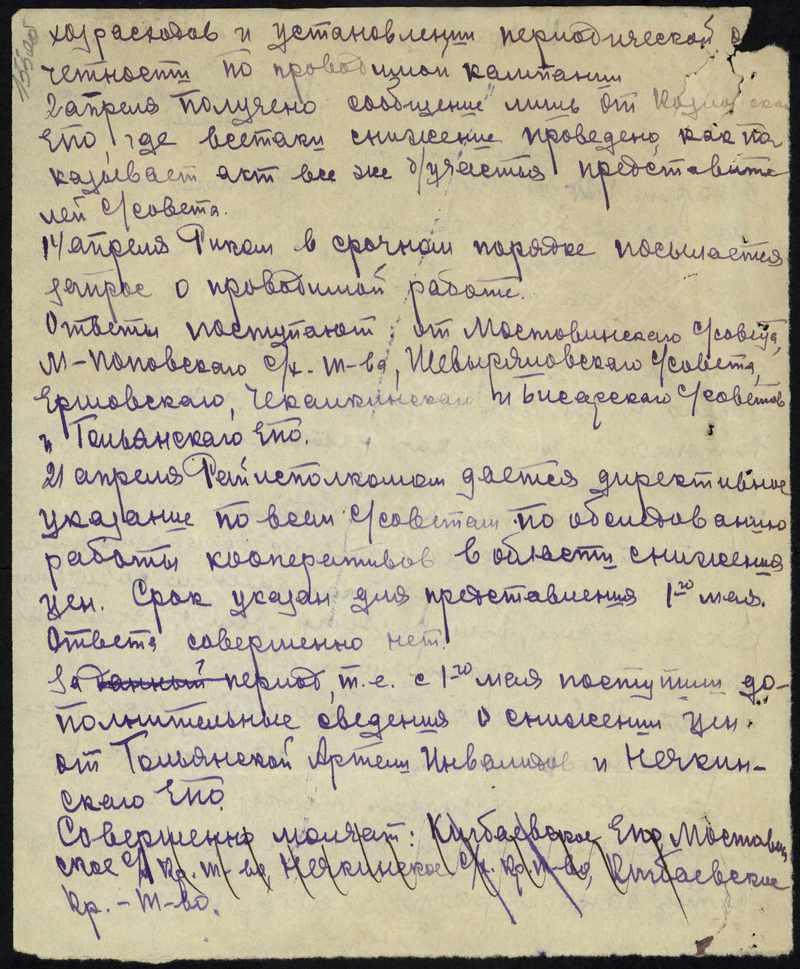 155об
хозрасходов и установлении периодической о
четности по проводимой кампании
2 апреля получено сообщение лишь от
ЕПО, где всетаки снижение проведено, как по
казывает акт все же б/участья представите
лей с/совета.
14 апреля Риком в срочном порядке посылается
запрос о проводимой работе.
Ответы поступают: от Мостовинскаго с/совета,
М-Поповскаго с/х. т-ва, Шевыряловскаго с/совета,
Ершовскаго, Чекалкинскаго и Бисарскаго с/советов
и Гольянскаго ЕПО.
21 апреля Райисполкомом дается директивное
указание по всем с/советам по обследованию
работы кооперативов в области снижения
цен. Срок указан для представления 1го мая.
Ответа совершенно нет.
За данный период, т.е. с 1го мая поступили до-
полнительные сведения о снижении цен.
от Гольянской Артели Инвалидов и Нечкин-
скаго ЕПО.
Совершенно молчат: Кигбаевское ЕПО, Мостовин
ское с/х кр. т-во, Нечкинское с/х. кр. т-во, Кигбаевское
кр. - т-во.